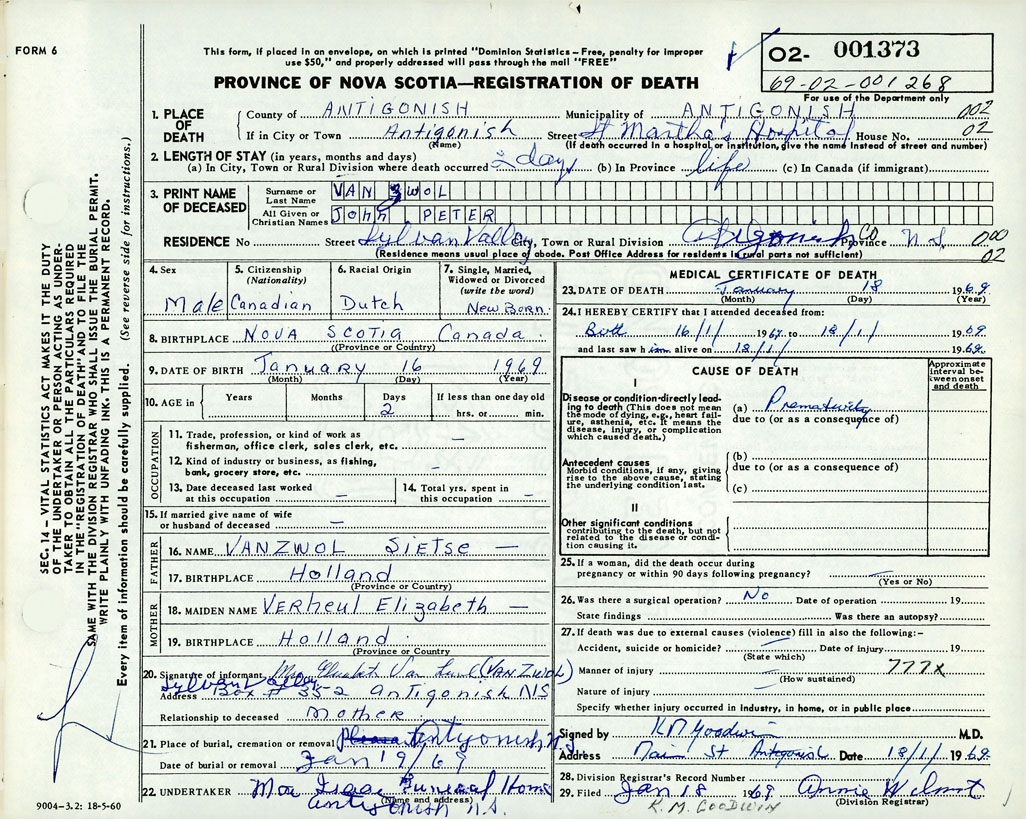 FORM 6
This form, if placed in an envelope, on which is printed "Dominion Statistics – Free, penalty for improper
use $50," and properly addressed will pass through the mail "FREE"
PROVINCE OF NOVA SCOTIA—REGISTRATION OF DEATH
02- 001373
69-02-001268
For use of the Department only
1. PLACE OF DEATH
County of ANTIGONISH Municipality of ANTIGONISH 002
If in City or Town Antigonish Street St Martha's Hospital House No. 02
(Name) (If death occurred in a hospital or institution, give the name instead of street and number)
2. LENGTH OF STAY (in years, months and days)
(a) In City, Town or Rural Division where death occurred 2 days (b) In Province life (c) In Canada (if immigrant)
3. PRINT NAME OF DECEASED
Surname or Last Name VAN ZWOL
All Given or Christian Names John PETER
RESIDENCE No Street Sylvan Valley City, Town or Rural Division Antigonish CO Province N.S. 000
(Residence means usual place of abode. Post Office Address for residents in rural parts not sufficient) 02
4. Sex Male
5. Citizenship (Nationality) Canadian
6. Racial Origin Dutch
7. Single, Married, Widowed or Divorced (write the word) New Born.
8. BIRTHPLACE NOVA SCOTIA Canada
(Province or Country)
9. DATE OF BIRTH January 16 1969
(Month) (Day) (Year)
10. AGE in Years Months Days 2 If less than one day old
hrs. or min.
OCCUPATION
11. Trade, profession, or kind of work as
fisherman, office clerk, sales clerk, etc. —
12. Kind of industry or business, as fishing,
bank, grocery store, etc. —
13. Date deceased last worked
at this occupation —
14. Total yrs. spent in
this occupation —
15. If married give name of wife
or husband of deceased —
FATHER
16. NAME VANZWOL Sietse —
17. BIRTHPLACE Holland
(Province or Country)
MOTHER
18. MAIDEN NAME Verheul Elizabeth —
19. BIRTHPLACE Holland
(Province or Country)
20. Signature of informant Mrs Elizabeth Van (VAN ZWOL)
Sylvan Valley
Address Box # 352 Antigonish NS
Relationship to deceased mother
21. Place of burial, cremation or removal Antigonish N.S
Date of burial or removal Jan 19/69
22. UNDERTAKER Mac Isaac Funeral Home
(Name and address)
Antigonish N.S.
MEDICAL CERTIFICATE OF DEATH
23. DATE OF DEATH January 18 1969
(Month) (Day) (Year)
24. I HEREBY CERTIFY that I attended deceased from:
16/1/ 1969 to 18/1/ 1969
and last saw him alive on 18/1/ 1969
CAUSE OF DEATH
Approximate interval between onset and death
I
Disease or condition directly leading to death (This does not mean the mode of dying, e.g., heart failure, asthenia, etc. It means the disease, injury, or complication which caused death.)
(a) Prematurity
due to (or as a consequence of)
Antecedent causes
Morbid conditions, if any, giving rise to the above cause, stating the underlying condition last.
(b)
due to (or as a consequence of)
(c)
II
Other significant conditions
contributing to the death, but not related to the disease or condition causing it.
25. If a woman, did the death occur during
pregnancy or within 90 days following pregnancy? —
(Yes or No)
26. Was there a surgical operation? No Date of operation 19
State findings Was there an autopsy?
27. If death was due to external causes (violence) fill in also the following:-
Accident, suicide or homicide? — Date of injury 19
(State which)
Manner of injury — 777X
(How sustained)
Nature of injury —
Specify whether injury occurred in industry, in home, or in public place
Signed by KM Goodwin M.D.
Address Main St Antigonish Date 18/1/ 1969
28. Division Registrar's Record Number
29. Filed Jan 18 1969 Annie Wilmot
(Division Registrar)
K. M. GOODWIN
SEC. 14 – VITAL STATISTICS ACT MAKES IT THE DUTY
OF THE UNDERTAKER OR PERSON ACTING AS UNDERTAKER
TO OBTAIN ALL THE PARTICULARS REQUIRED
IN THE "REGISTRATION OF DEATH" AND TO FILE THE
SAME WITH THE DIVISION REGISTRAR WHO SHALL ISSUE THE BURIAL PERMIT.
WRITE PLAINLY WITH UNFADING INK. THIS IS A PERMANENT RECORD.
Every item of information should be carefully supplied. (See reverse side for instructions.)
9004-3.2: 18-5-60